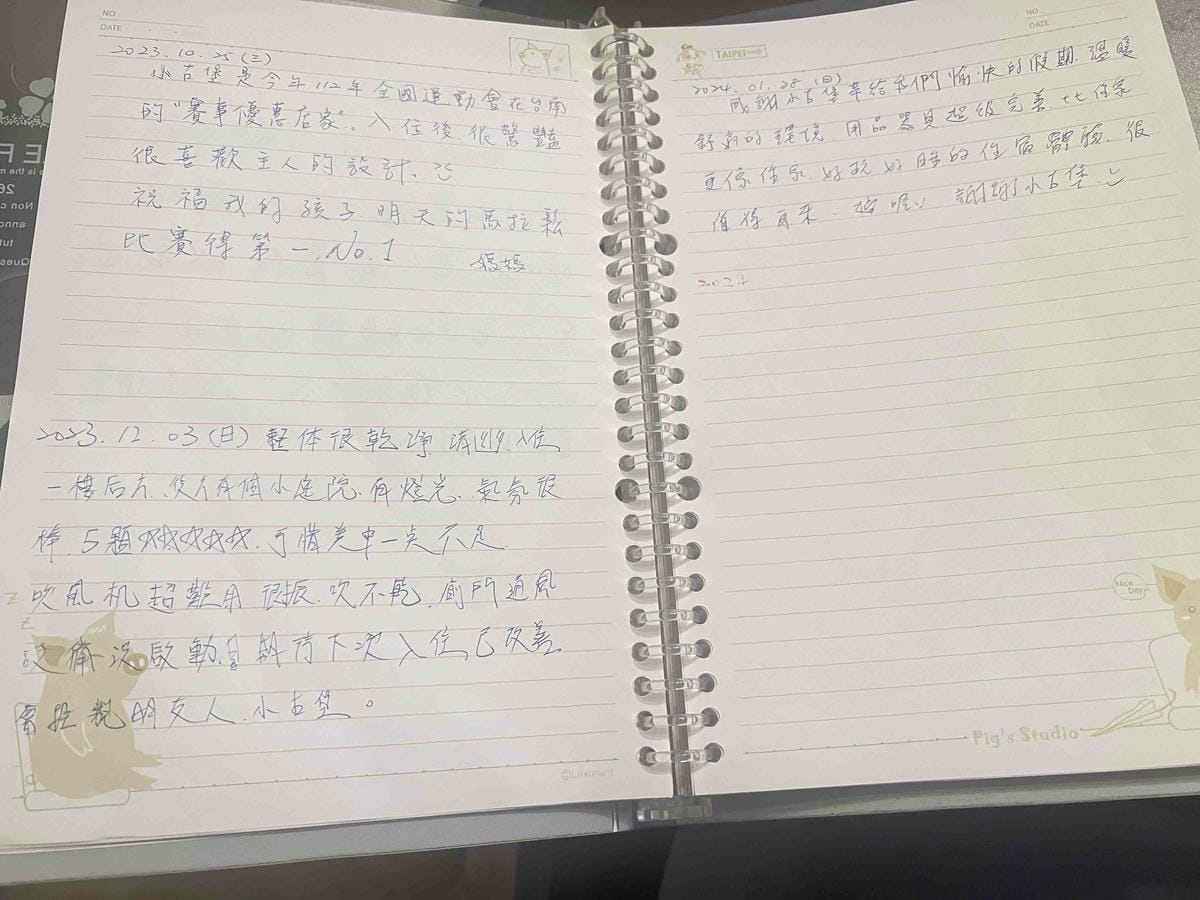 NO
DATE
2023.10.25(三)
小古堡是今年112年全國運動會在台南
的"賽事優惠店家"。入住後,很驚艷
很喜歡主人的設計.
祝福我的孩子明天的馬拉松
比賽得第一.No.1.
媽媽.
2023.12.03(日)整体很乾淨 入住
一樓后方.后方有個小庭院.有燈光.氣氛很
棒.5顆☆☆☆☆☆.可惜美中一点不足
吹風机超難用 很振.吹不乾.廁所通風
設備沒啟動.期待下次入住已改善
會推 朋友人.小古堡。
©Luxuriant
NO
DATE
TAIPEI
2024.01.28(日)
感謝小古堡 給我們愉快的假期.溫暖
舒適的環境.用品器具超級完美.比住家
更像住家.好玩好睡的住宿體驗.很
值得再來一 喔!! 謝謝小古堡.
202
Nice
Day
Pig's Studio